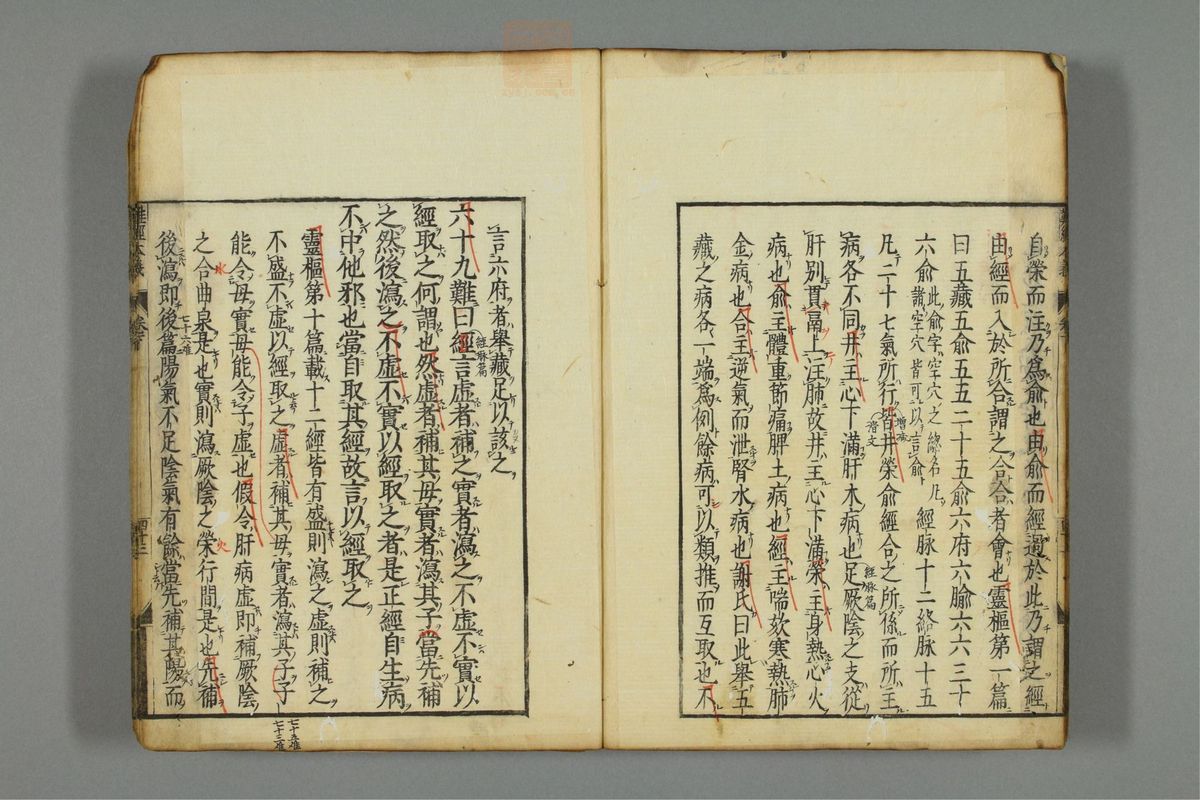 自滎而注乃爲俞也由俞而經過於此乃謂之經
由經而入於所合謂之合合者會也靈樞第一篇
曰五藏五俞五五二十五俞六府六腧六六三十
六俞此俞字空穴之總名凡諸空穴皆可以言俞經脉十二絡脉十五
凡二十七氣所行皆井滎俞經合之所係而所主
病各不同井主心下滿肝木病也足厥陰之支從
肝別貫鬲上注肺故井主心下滿滎主身熱心火
病也俞主體重節痛脾土病也經主喘欬寒熱肺
金病也合主逆氣而泄腎水病也謝氏曰此舉五
藏之病各一端爲例餘病可以類推而互取也不
言六府者舉藏足以該之
六十九難曰經言虛者補之實者瀉之不虛不實以
經取之何謂也然虛者補其母實者瀉其子當先補
之然後瀉之不虛不實以經取之者是正經自生病
不中他邪也當自取其經故言以經取之
靈樞第十篇載十二經皆有盛則瀉之虛則補之
不盛不虛以經取之虛者補其母實者瀉其子子
能令母實母能令子虛也假令肝病虛即補厥陰
之合曲泉是也實則瀉厥陰之滎行間是也先補
後瀉即後篇陽氣不足陰氣有餘當先補其陽而
經脉篇
經脉篇
水
火
七十六難
七十五難
七十三難